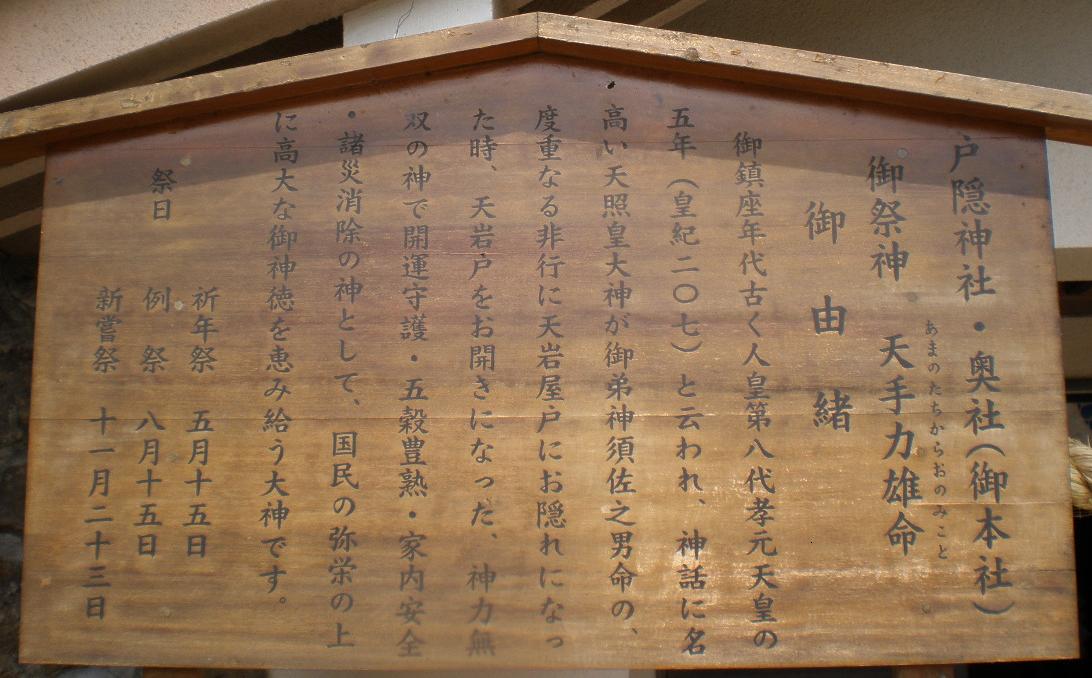 戸隠神社・奥社(御本社)
あまのたちからおのみこと
御祭神 天手力雄命
御由緒
御鎮座年代古く人皇第八代孝元天皇の
五年(皇紀二〇七)と云われ、神話に名
高い天照皇大神が御弟神須佐之男命の、
度重なる非行に天岩屋戸にお隠れになっ
た時、天岩戸をお開きになった、神力無
双の神で開運守護・五穀豊熟・家内安全
・諸災消除の神として、国民の弥栄の上
に高大な御神徳を恵み給う大神です。
祭日
祈年祭 五月十五日
例祭 八月十五日
新嘗祭 十一月二十三日